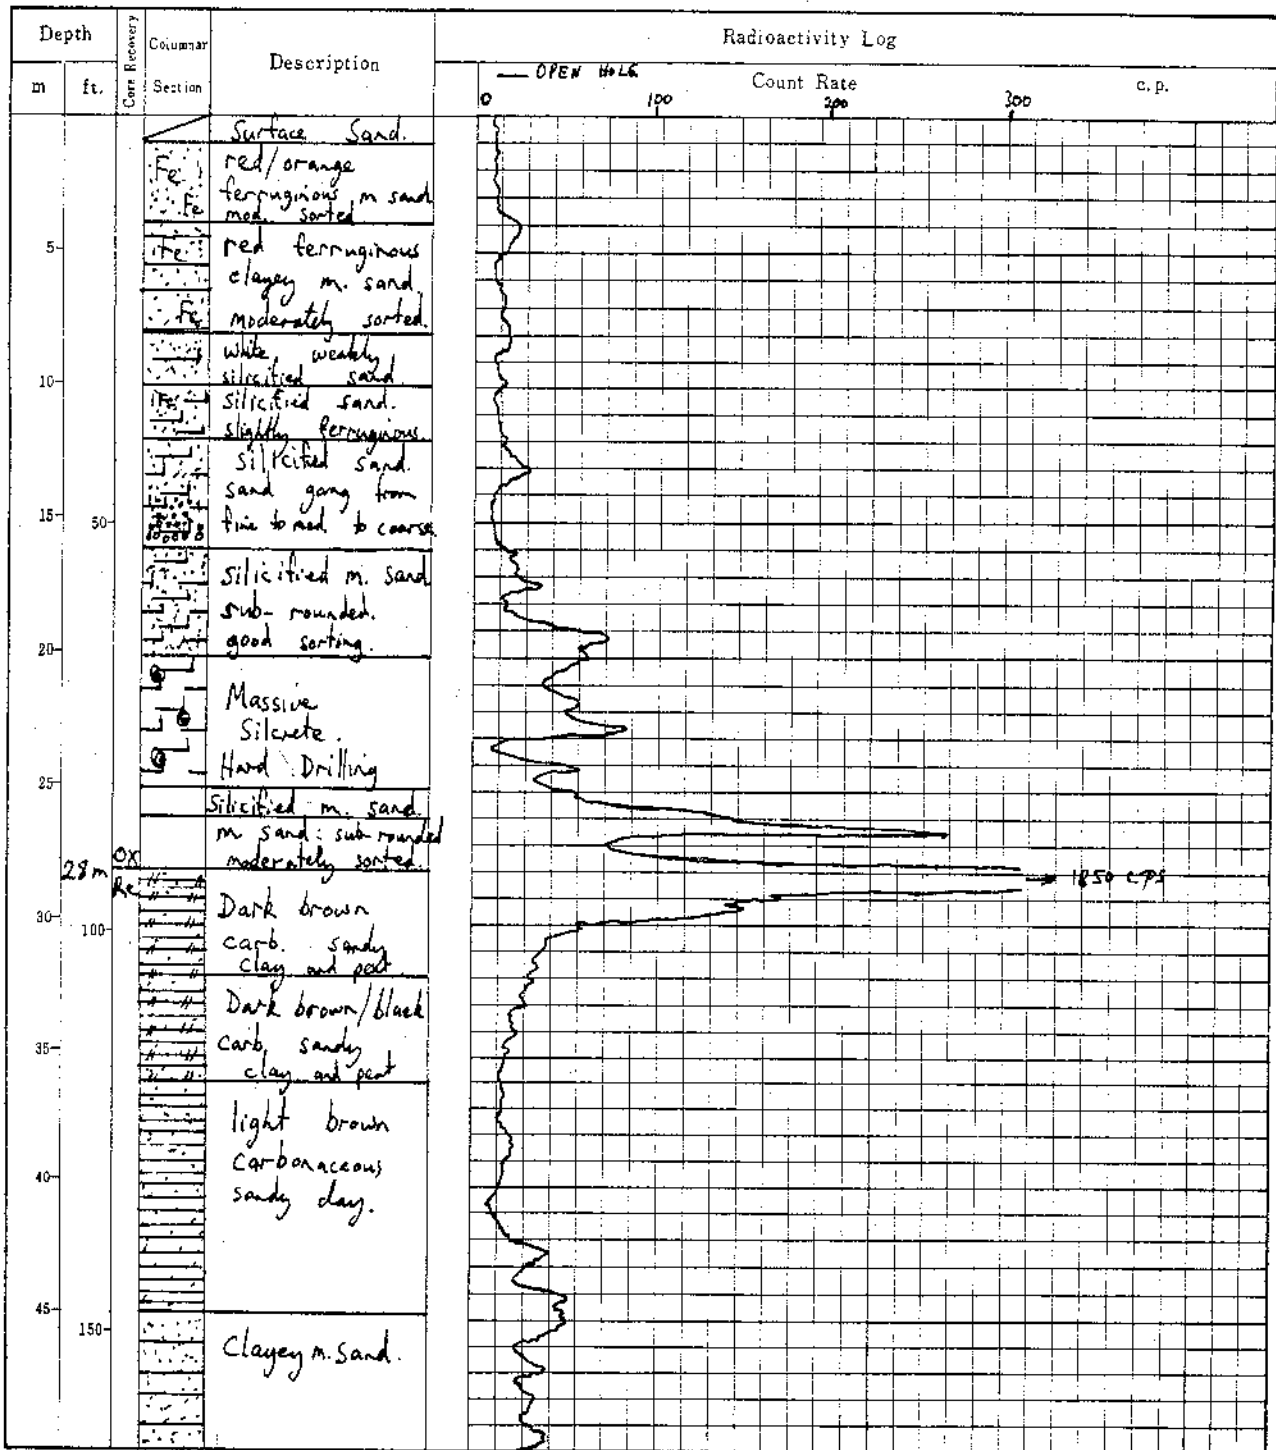 Depth
Core Recovery
Columnar
Section
Description
Radioactivity Log
m
ft.
OPEN HOLE
Count Rate
c.p.
0
100
200
300
Surface Sand.
Fe
Fe
red/orange
ferruginous m sand
mod. sorted
5
Fe
Fe
red ferruginous
clayey m. sand.
moderately sorted.
white, weakly
silicified sand.
10
Fe
silicified sand.
slightly ferruginous.
silicified sand.
sand gang from
15
50
fine to med. to coarse.
silicified m. sand
sub-rounded.
good sorting.
20
Massive
Silcrete.
Hard Drilling
25
Silicified m. sand.
m sand: sub-rounded
moderately sorted.
OX
28m
Re
1850 CPS
Dark brown
30
100
carb. sandy
clay and peat
Dark brown/black
35
carb. sandy
clay and peat
light brown
carbonaceous
40
sandy clay.
45
150
Clayey m. Sand.